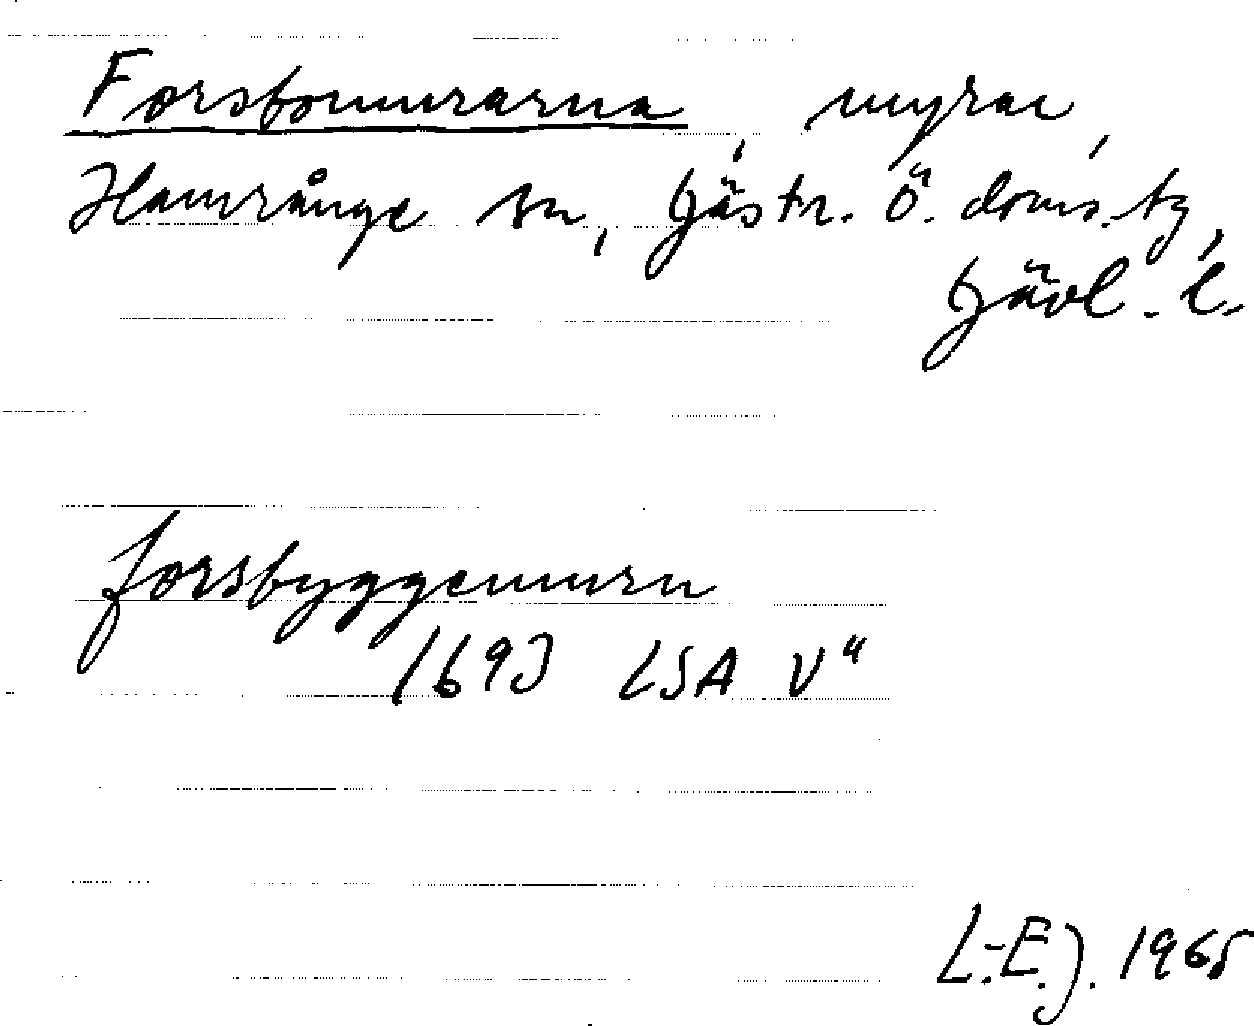 Forsbomurarna, myrar,
Hamrånge sn, Gästr. Ö. doms.tg,
Gävl. l.
forsbyggemurn
1693 LSA V"
L.-E.J. 1965